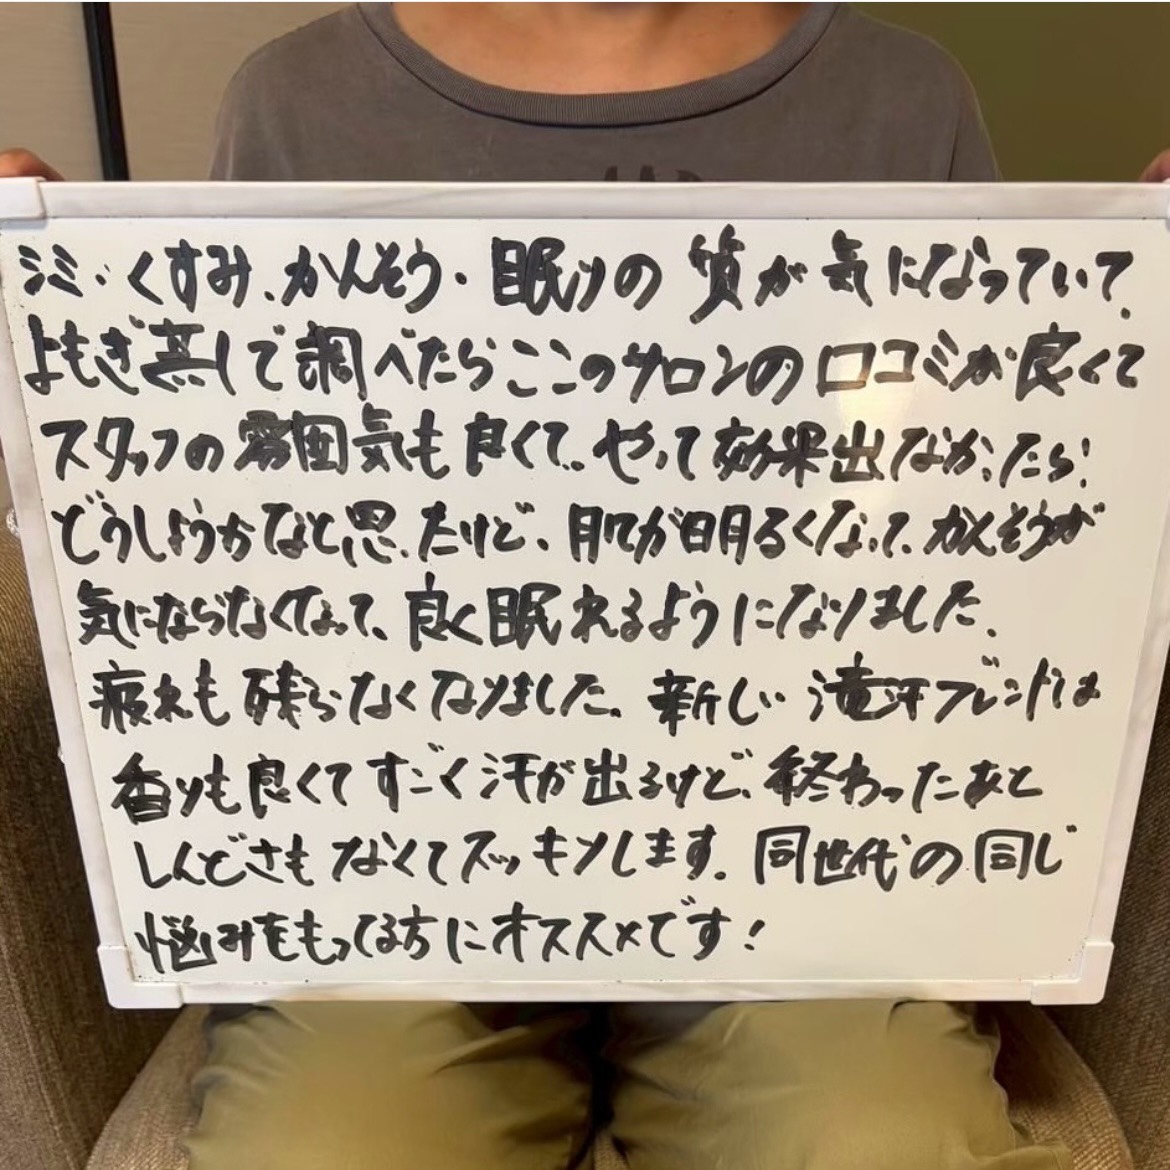 シミ・くすみ、かんそう・眠りの質が気になっていて、
よもぎ蒸しで調べたらここのサロンの口コミが良くて
スタッフの雰囲気も良くて。やって効果出なかったら
どうしようかなと思ったけど、肌が明るくなって、かんそうが
気にならなくなって、良く眠れるようになりました。
疲れも残らなくなりました。新しい滝汗ブレンドは
香りも良くてすごく汗が出るけど、終わったあと
しんどさもなくてスッキリします。同世代の同じ
悩みをもってる方にオススメです!